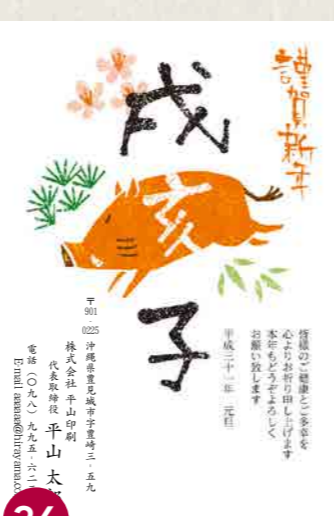 謹賀新年
戌
亥
子
皆様のご健康とご多幸を
心よりお祈り申し上げます
本年もどうぞよろしく
お願い致します
平成三十一年 元旦
〒901-0225 沖縄県豊見城市字豊崎三-五九
株式会社 平山印刷
代表取締役 平山 太
電話(〇九八)九九五-六二
E-mail aaaaaa@hirayama.co